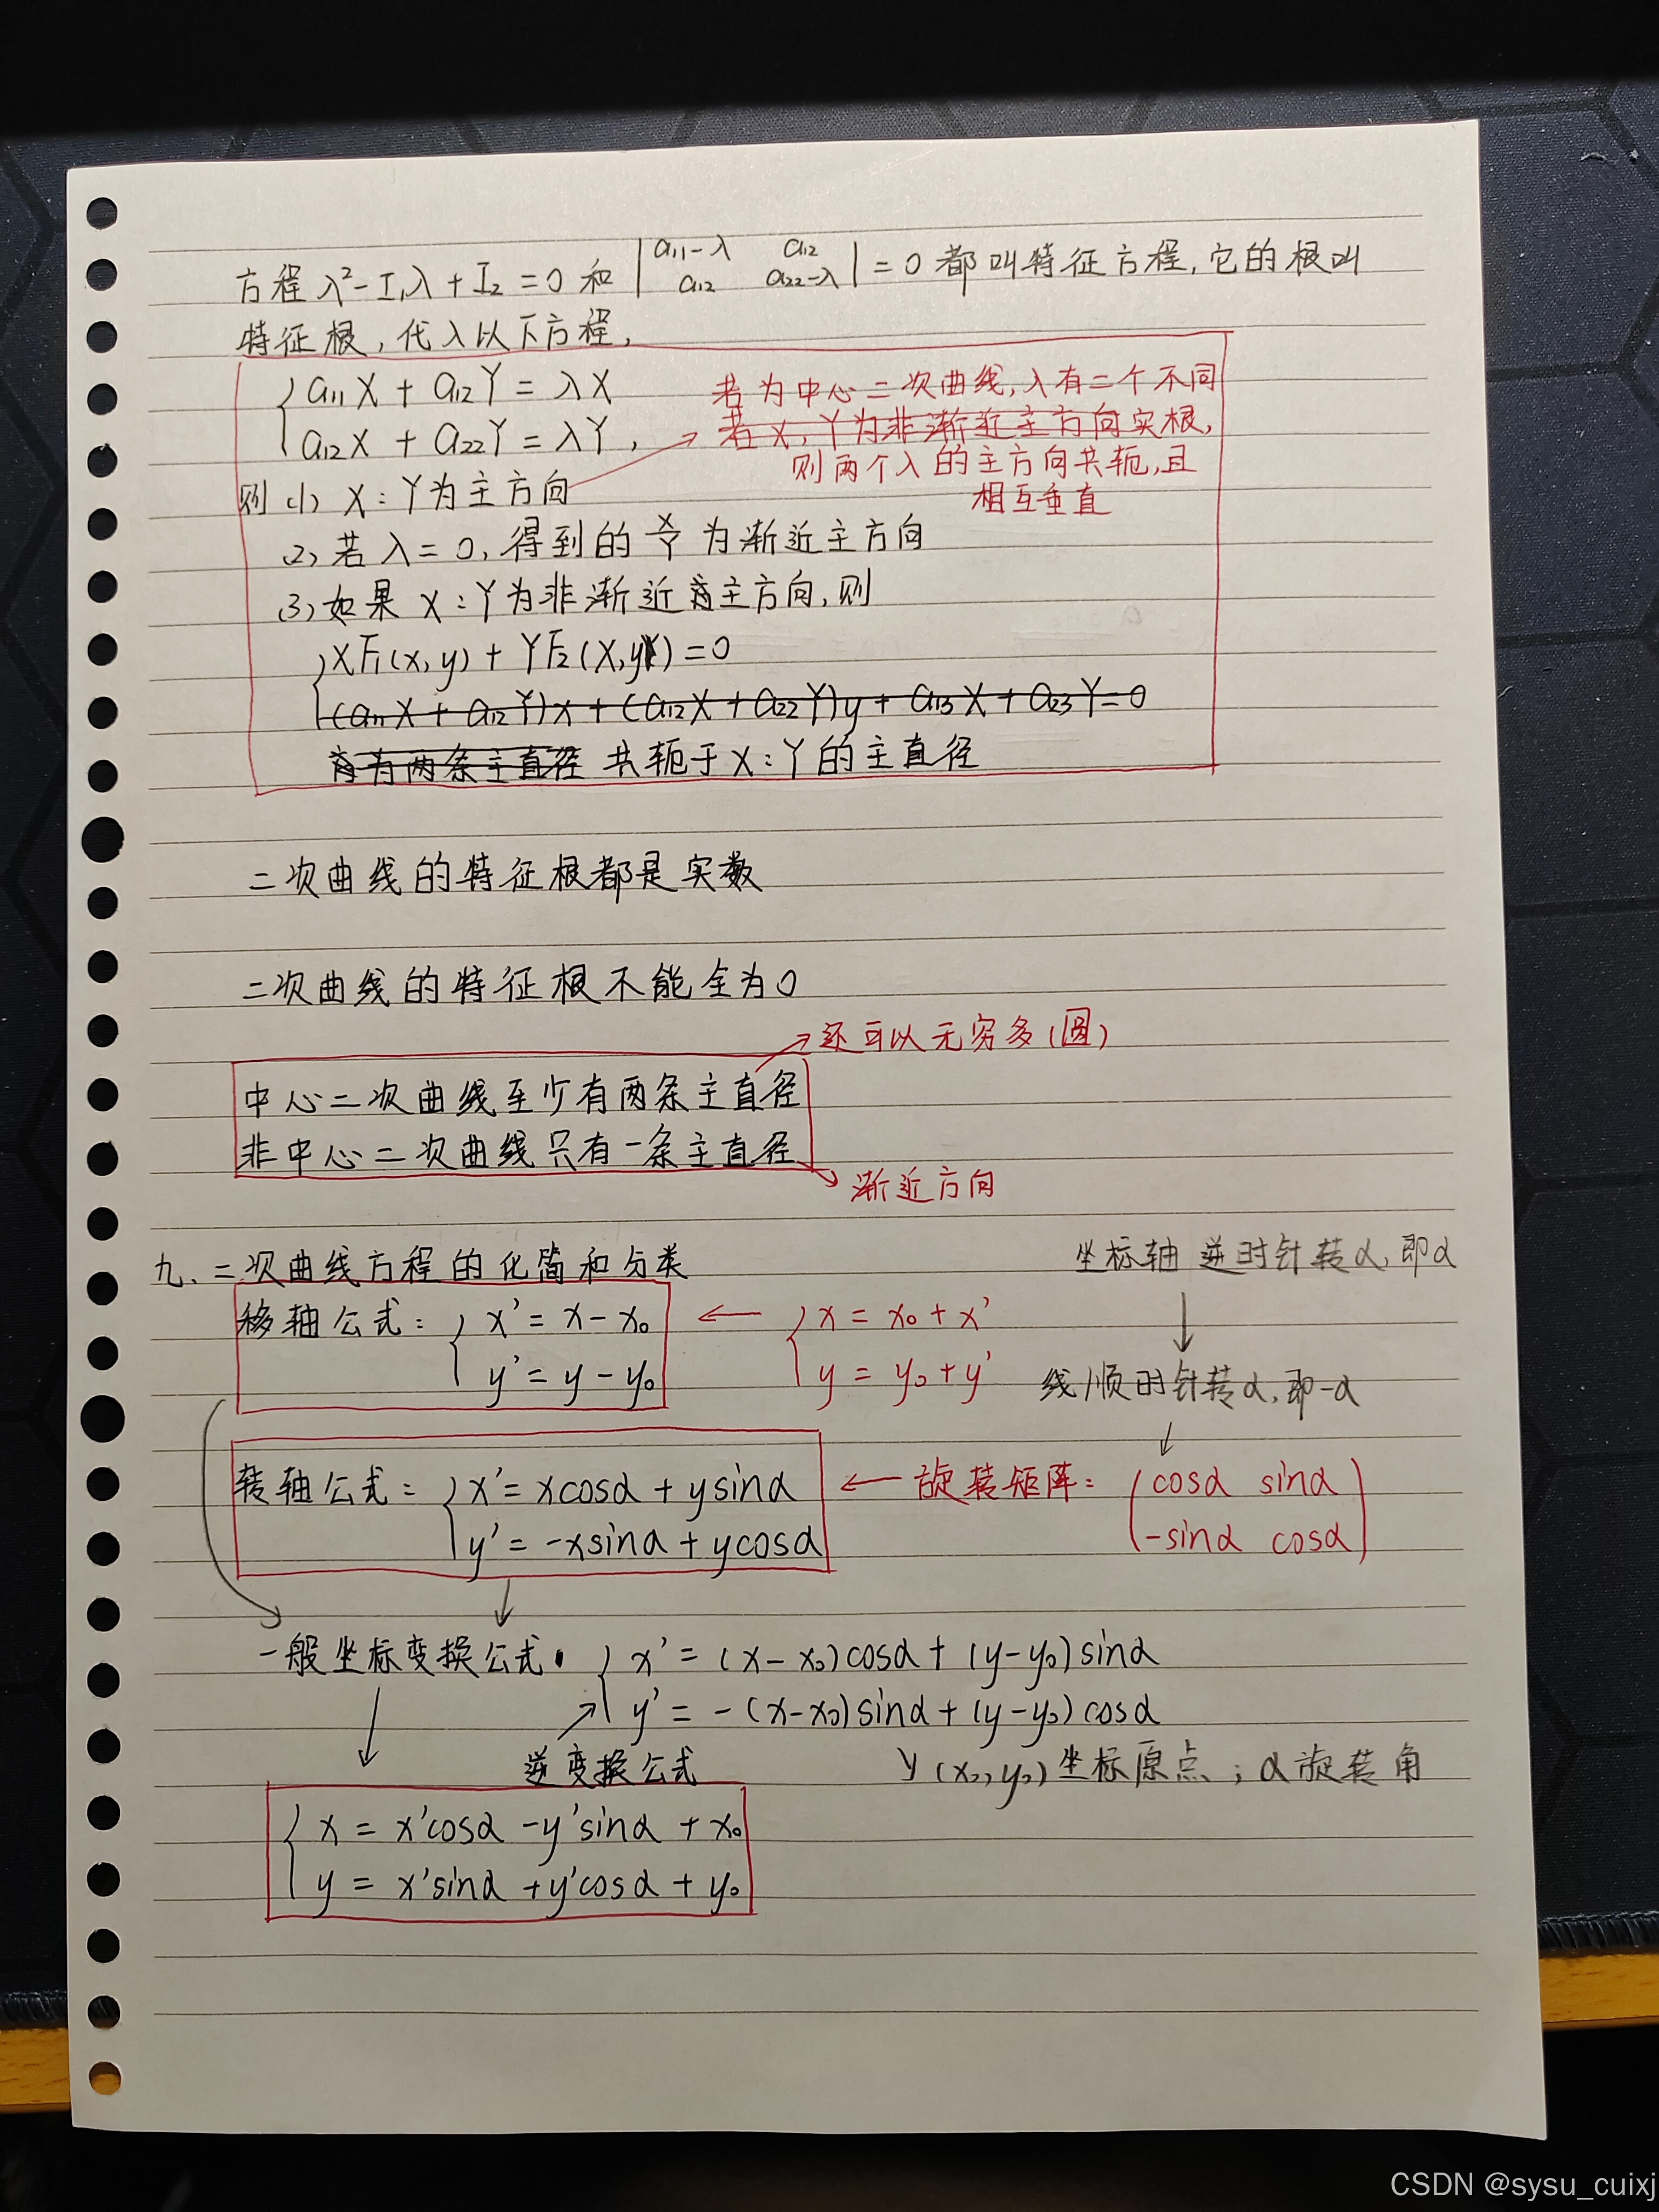 方程 λ²-I₁λ+I₂=0 和 |a₁₁-λ a₁₂
a₁₂ a₂₂-λ| =0 都叫特征方程,它的根叫
特征根,代入以下方程,
{a₁₁X + a₁₂Y = λX
a₁₂X + a₂₂Y = λY,
若为中心二次曲线,λ有二个不同
若X,Y为非渐近主方向实根,
则两个λ的主方向共轭,且
相互垂直
则 (1) X:Y为主方向
(2) 若λ=0,得到的 X/Y 为渐近主方向
(3) 如果 X:Y为非渐近主方向,则
{XF₁(x,y) + YF₂(x,y)=0
(a₁₁X + a₁₂Y)x + (a₁₂X + a₂₂Y)y + a₁₃X + a₂₃Y=0
为两条主直径 共轭于X:Y的主直径
二次曲线的特征根都是实数
二次曲线的特征根不能全为0
还可以无穷多(圆)
中心二次曲线至少有两条主直径
非中心二次曲线只有一条主直径
渐近方向
九、二次曲线方程的化简和分类
坐标轴 逆时针转α,即α
移轴公式: {x' = x-x₀ ← {x = x₀+x'
y' = y-y₀ y = y₀+y'
线顺时针转α,即-α
转轴公式: {x'=xcosα+ysinα ← 旋转矩阵: (cosα sinα
y'= -xsinα+ycosα -sinα cosα)
一般坐标变换公式: {x' = (x-x₀)cosα+(y-y₀)sinα
y' = -(x-x₀)sinα+(y-y₀)cosα
逆变换公式 (x₀,y₀)坐标原点;α旋转角
{x = x'cosα -y'sinα + x₀
y = x'sinα +y'cosα + y₀
CSDN @sysu_cuixj